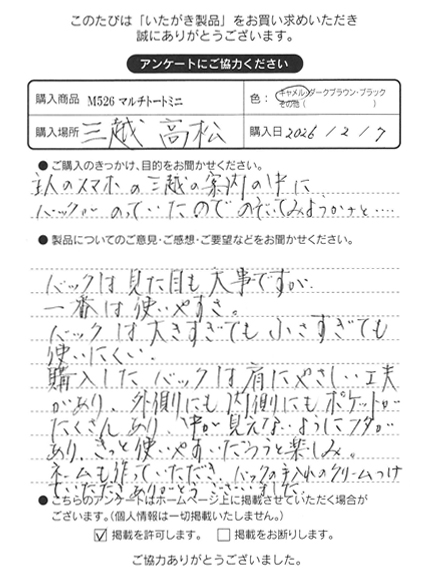 このたびは「いたがき製品」をお買い求めいただき
誠にありがとうございます。
アンケートにご協力ください
購入商品 M526 マルチトートミニ 色：キャメル・ダークブラウン・ブラック
その他（ ）
購入場所 三越 高松 購入日 2026 / 2 / 7
● ご購入のきっかけ、目的をお聞かせください。
主人のスマホの三越の案内の中に
バックがのっていたのでのぞいてみようかなと‥‥
● 製品についてのご意見・ご感想・ご要望などをお聞かせください。
バックは見た目も大事ですが
一番は使いやすさ。
バックは大きすぎても小さすぎても
使いにくい。
購入したバックは肩にやさしい工夫
があり、外側にも内側にもポケットが
たくさんあり、中が見えないようにフタが
あり、きっと使いやすいだろうと楽しみ。
ネームも作っていただき、バックの手入れのクリームつけ
ていただきありがとうございました。
● こちらのアンケートはホームページ上に掲載させていただく場合が
ございます。（個人情報は一切掲載いたしません。）
☑ 掲載を許可します。 □ 掲載をお断りします。
ご協力ありがとうございました。